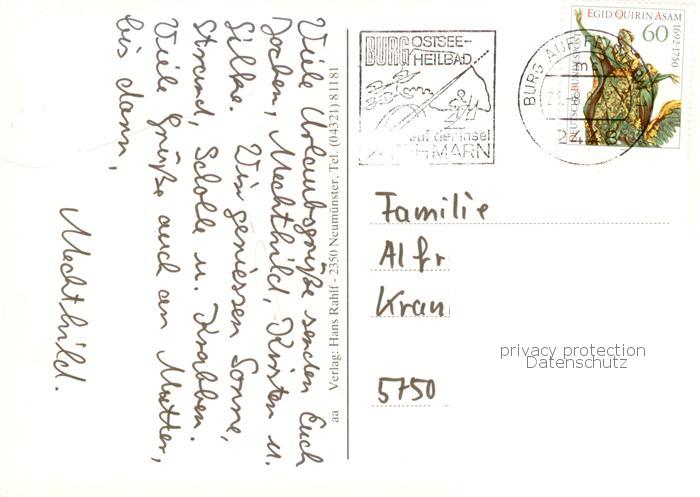 Viele Urlaubsgrüße senden Euch
Jochen, Mechthild, Kirsten u.
Silke. Wir geniessen Sonne,
Strand, Scholle u. Krabben.
Viele Grüße auch an Mutter,
bis dann,
Mechthild.
aa Verlag: Hans Rahlf - 2350 Neumünster, Tel. (04321) 81181
BURG OSTSEE-
HEILBAD
auf der Insel
FEHMARN
BURG AUF FEHMARN
2448
EGID QUIRIN ASAM
1692-1750
60
DEUTSCHE BUNDESPOST
Familie
Alfr
Kran
5750
privacy protection
Datenschutz